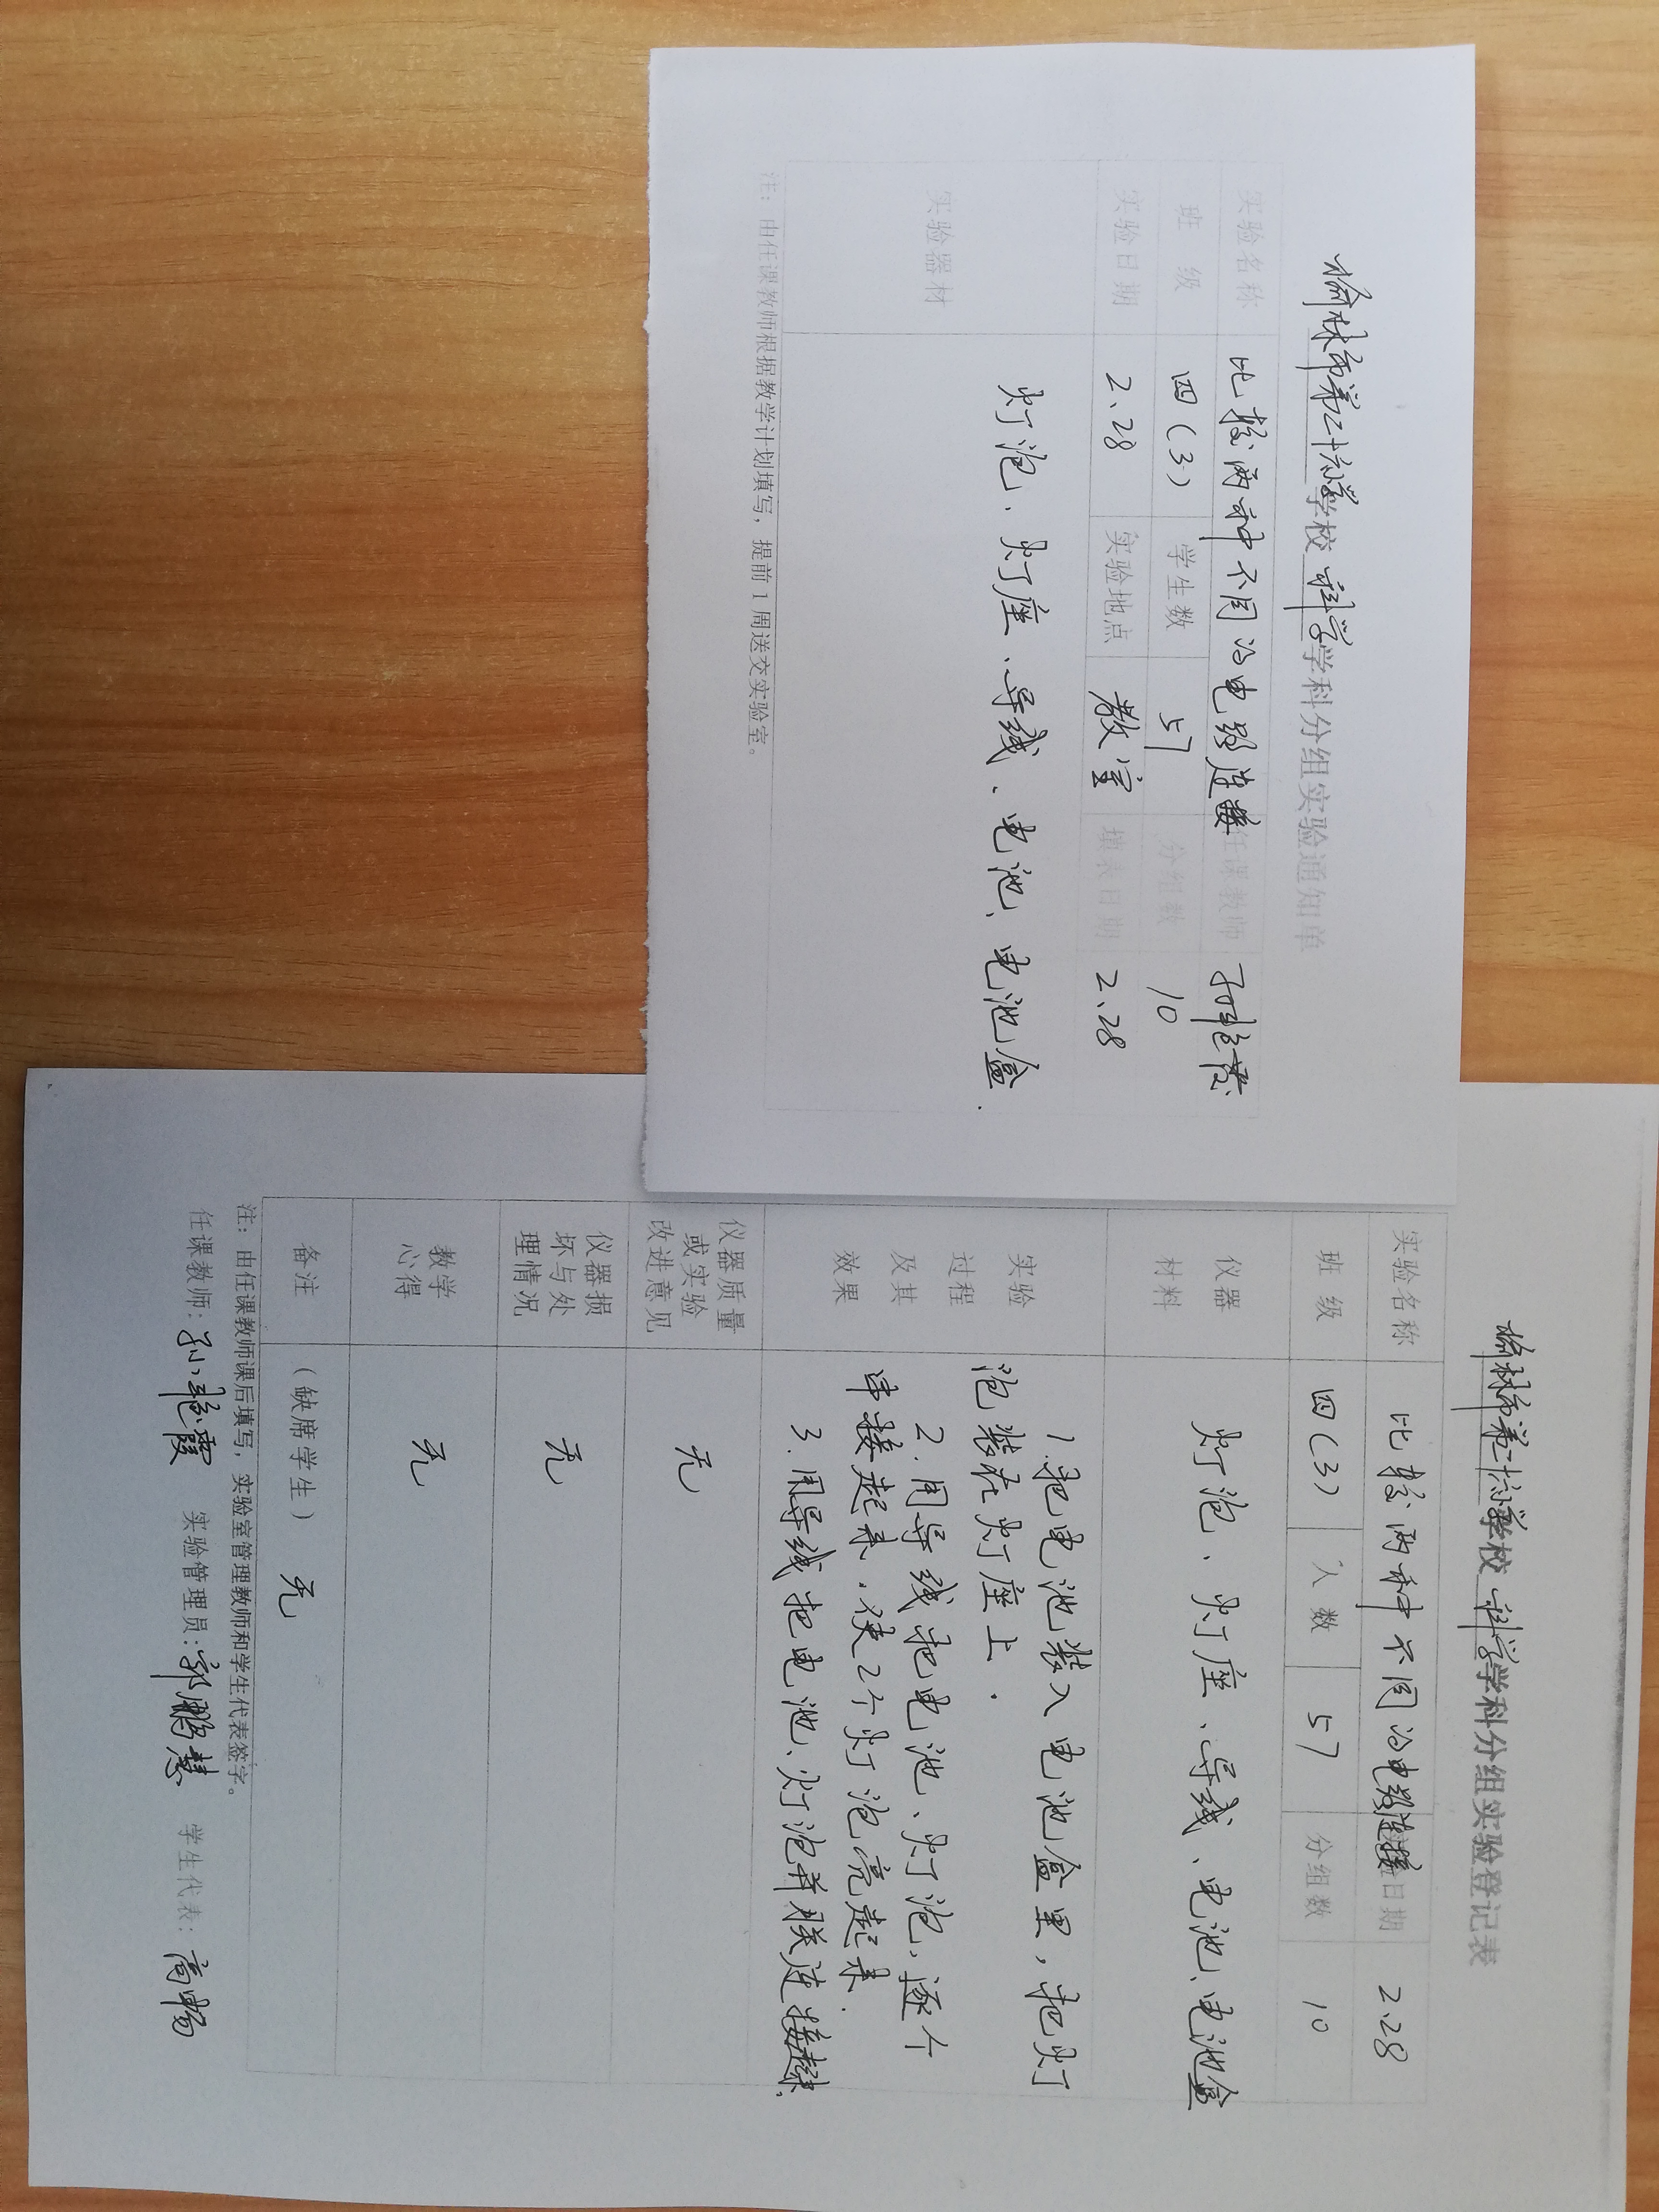 榆林市第二十六小学学校 科学 学科分组实验通知单
实验名称 比较两种不同的电路连接 任课教师 孙艳霞
班 级 四(3) 学生数 57 分组数 10
实验日期 2.28 实验地点 教室 填表日期 2.28
实验器材 灯泡、灯座、导线、电池、电池盒.
注：由任课教师根据教学计划填写，提前1周送交实验室。
榆林市第二十六小学学校 科学 学科分组实验登记表
实验名称 比较两种不同的电路连接 日期 2.28
班 级 四(3) 人数 57 分组数 10
仪器
材料
灯泡、灯座、导线、电池、电池盒
实验
过程
及其
效果
1.把电池装入电池盒里，把灯
泡装在灯座上.
2.用导线把电池、灯泡,逐个
串接起来,使2个灯泡亮起来.
3.用导线把电池、灯泡并联连接起来.
仪器质量
或实验
改进意见
无
仪器损
坏与处
理情况
无
教学
心得
无
备注 （缺席学生） 无
注：由任课教师课后填写，实验室管理教师和学生代表签字。
任课教师：孙艳霞 实验管理员：郭鹏慧 学生代表：高畅